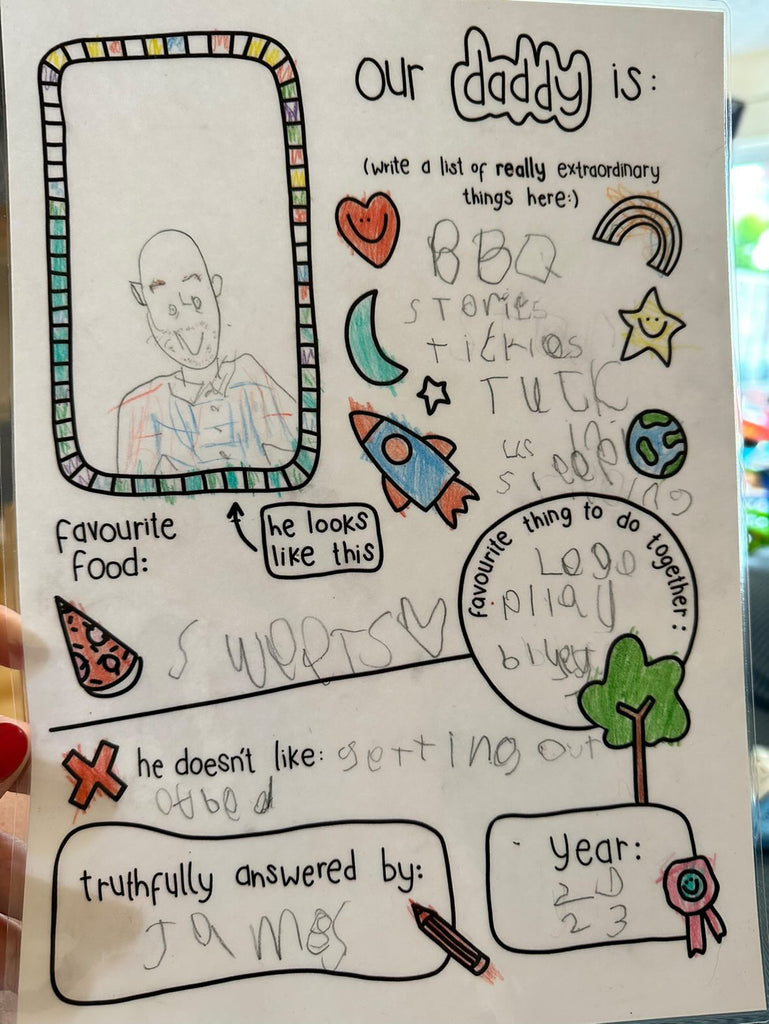 our daddy is:
(write a list of really extraordinary
things here:)
BBQ
stories
tickles
TUCK
us in
sleeping
he looks
like this
favourite
food:
SWEETS
favourite thing to do together:
Lego
pllay
he doesn't like: getting out
of bed
truthfully answered by:
James
year:
20
23